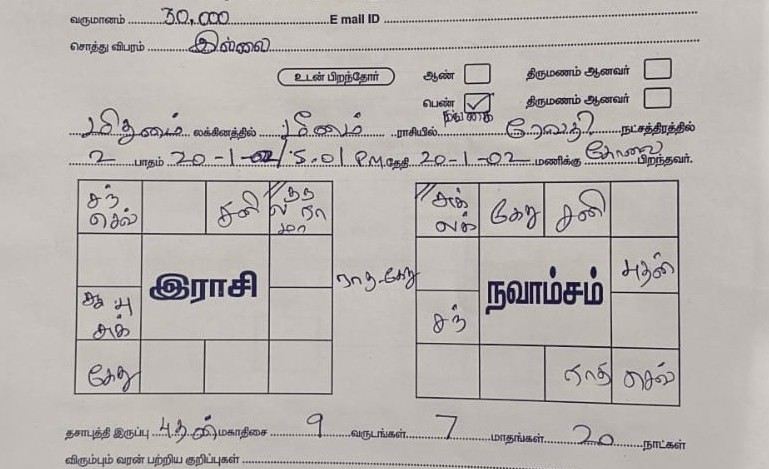 வருமானம் 30,000 E mail ID
சொத்து விபரம் இல்லை
உடன் பிறந்தோர் ஆண் திருமணம் ஆனவர்
பெண் திருமணம் ஆனவர்
மிதுனம் லக்கினத்தில் மீனம் ராசியில் ரேவதி நட்சத்திரத்தில்
2 பாதம் 20-1-02/5.01 P.M தேதி 20-1-02 மணிக்கு பிறந்தவர்.
சந் செவ் சனி
இராசி
ராகு-கேது
கேது
லக் கேது சனி
நவாம்சம்
புதன்
சந்
செவ்
தசாபுத்தி இருப்பு புதன் மகாதிசை 9 வருடங்கள் 7 மாதங்கள் 20 நாட்கள்
விரும்பும் வரன் பற்றிய குறிப்புகள்